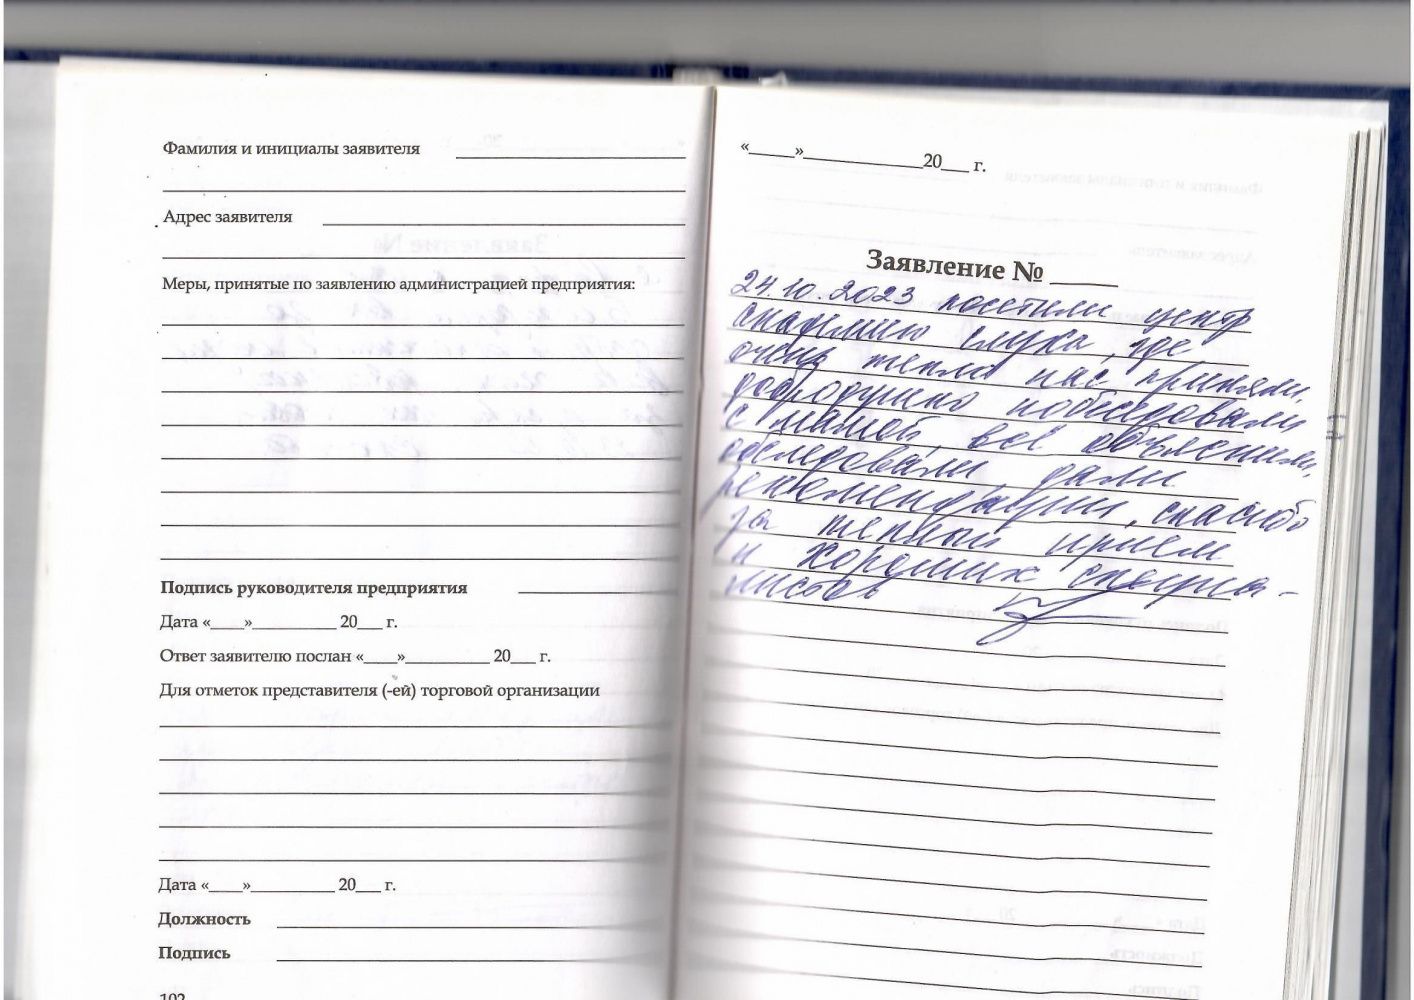 Фамилия и инициалы заявителя
Адрес заявителя
Меры, принятые по заявлению администрацией предприятия:
Подпись руководителя предприятия
Дата «____»__________ 20___ г.
Ответ заявителю послан «____»__________ 20___ г.
Для отметок представителя (-ей) торговой организации
Дата «____»__________ 20___ г.
Должность
Подпись
102
«_____»_____________20___ г.
Заявление № _____
24.10.2023 посетили центр
академию слуха, где
очень тепло нас приняли,
добродушно побеседовали
с мамой, всё объяснили,
обследовали, дали
рекомендации, спасибо
за теплый прием
и хороших специа-
листов